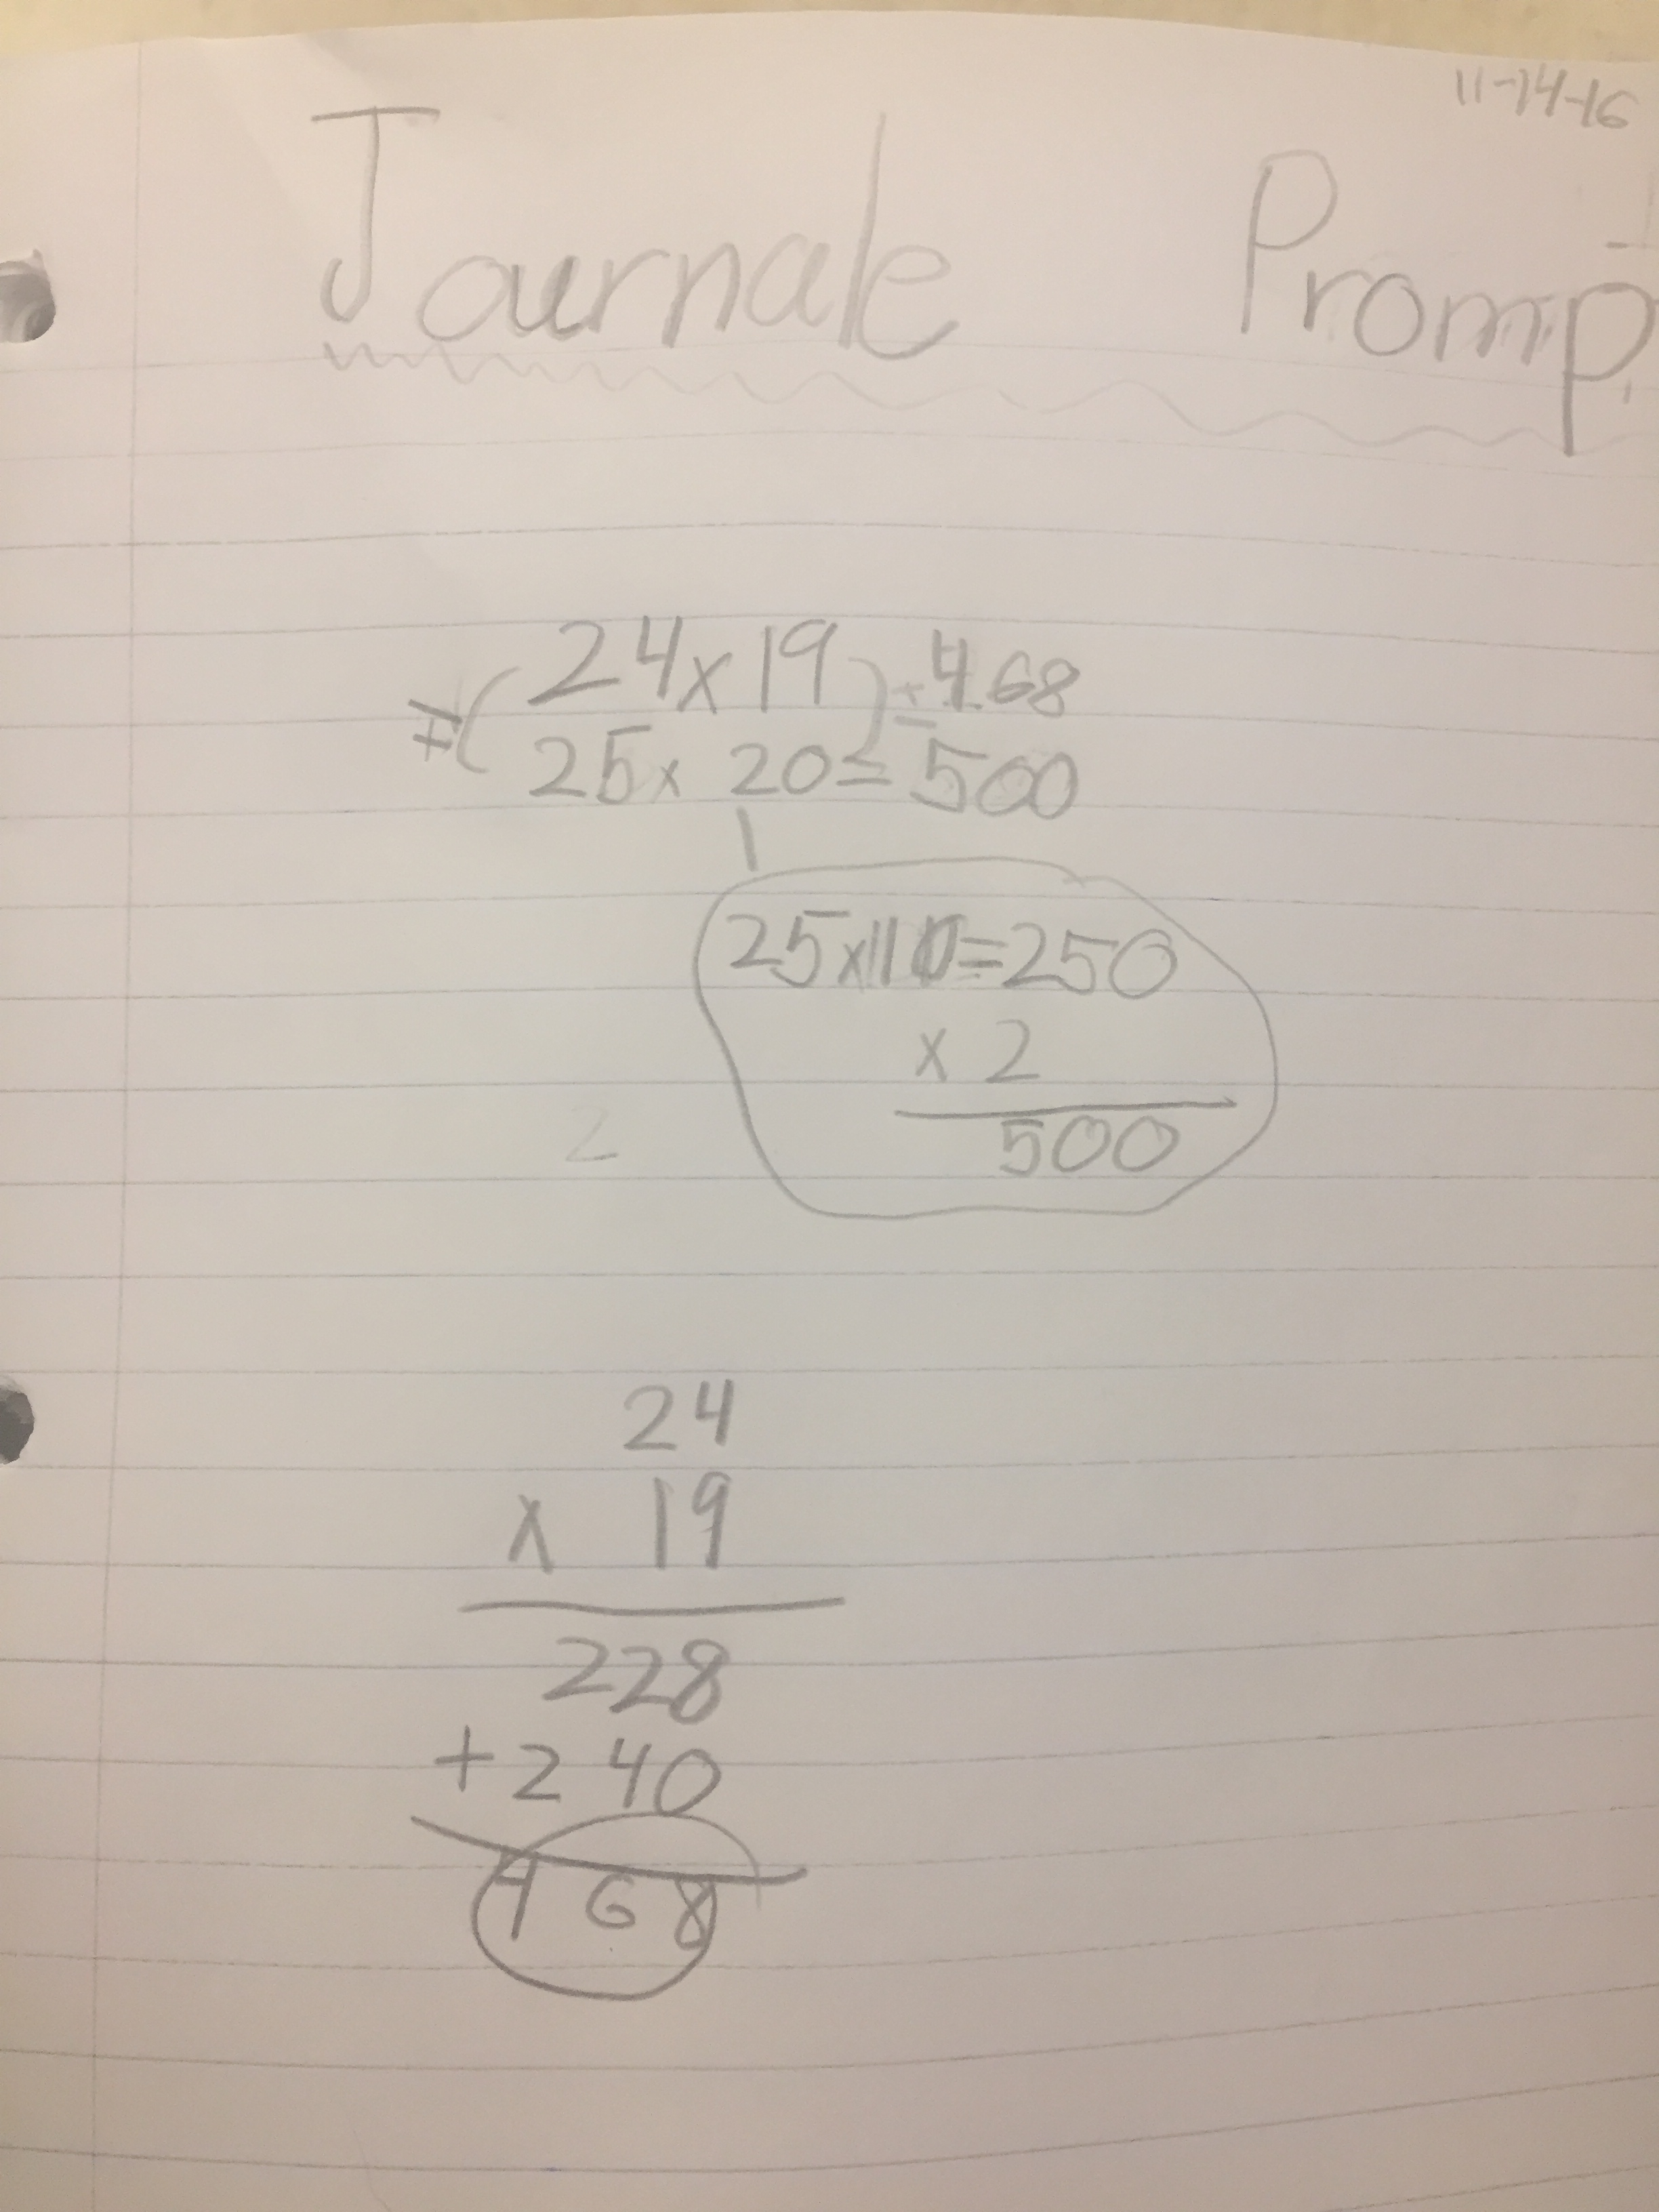 11-14-16
Journale Prompt
≠(24x19)=468
25x 20=500
25x10=250
x 2
500
2
24
x 19
228
+240
468